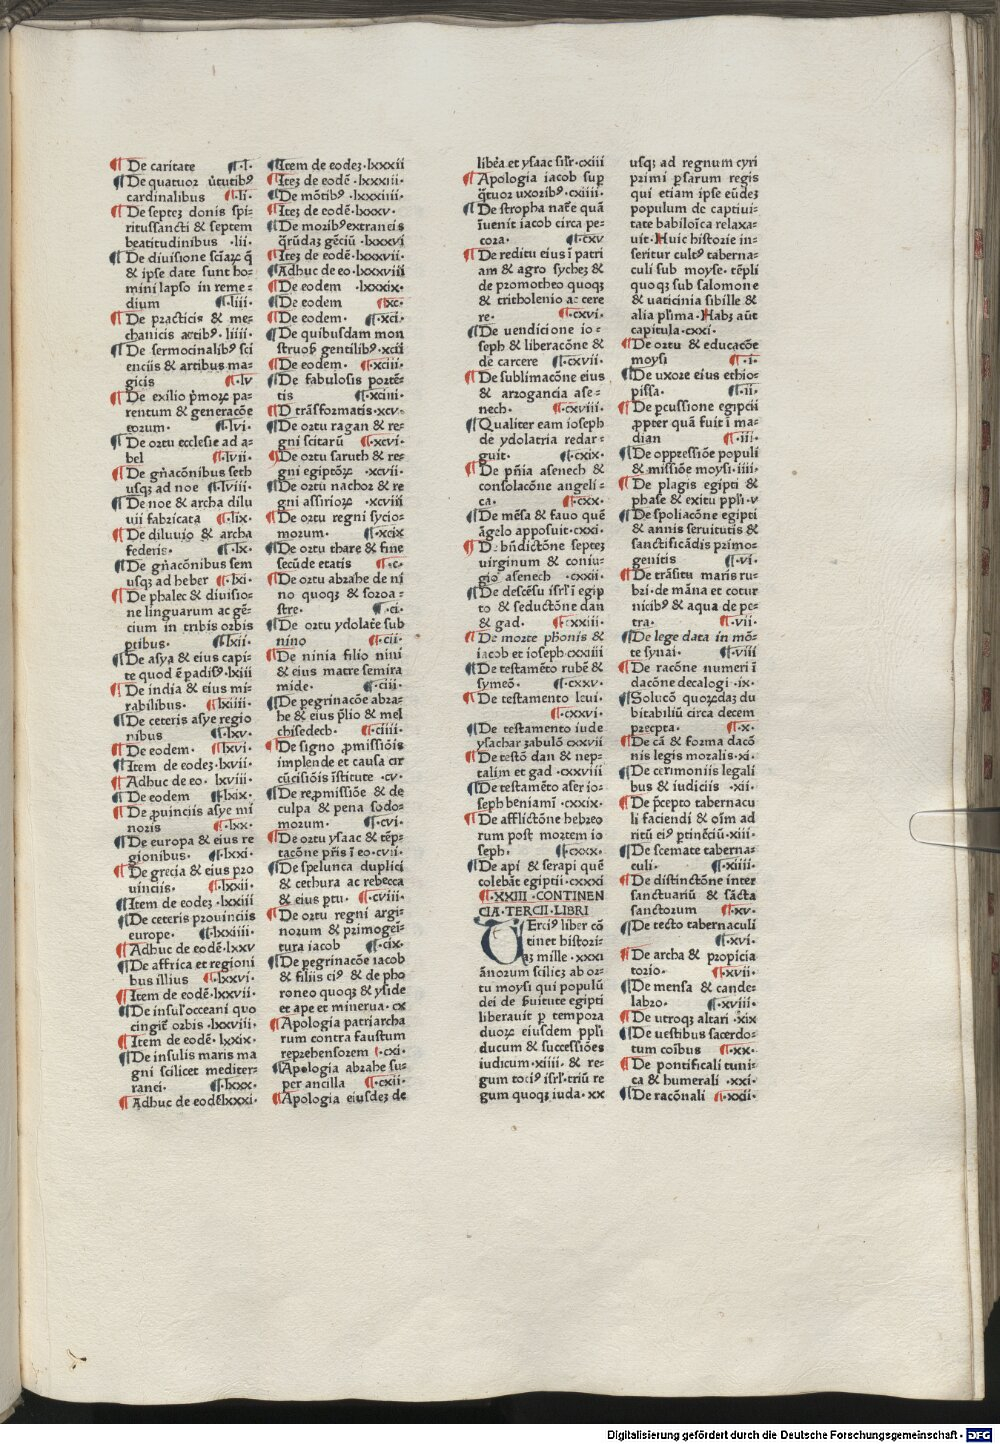 ¶ De caritate ¶·l·
¶ De quatuor ṽtutibꝰ
cardinalibus ¶·li·
¶ De septeʒ donis spi⸗
ritussancti & septem
beatitudinibus ·lii·
¶ De diuisione sciaꝝ q̄
& ipse date sunt ho⸗
mini lapso in reme⸗
dium ¶·liii·
¶ De practicis & me⸗
chanicis artibꝰ· liiii·
¶ De sermocinalibꝰ sci
enciis & artibus ma⸗
gicis ¶·lv
¶ De exilio p̄moꝝ pa⸗
rentum & generacōe
eorum· ¶·lvi·
¶ De ortu ecclesie ad a⸗
bel ¶·lvii·
¶ De gn̄acōnibus seth
usqꝫ ad noe ¶·lviii·
¶ De noe & archa dilu
uii fabricata ¶·lix·
¶ De diluuio & archa
federis· ¶·lx·
¶ De gn̄acōnibus sem
usqꝫ ad heber ¶·lxi·
¶ De phalec & diuisio⸗
ne linguarum ac gē⸗
cium in tribis orbis
ꝑtibus· ¶·lxii·
¶ De asya & eius capi⸗
te quod ē ꝑadisꝰ·lxiii
¶ De india & eius mi⸗
rabilibus· ¶·lxiiii·
¶ De ceteris asye regio
nibus ¶·lxv·
¶ De eodem· ¶·lxvi·
¶ Item de eodeʒ·lxvii·
¶ Adhuc de eo· lxviii·
¶ De eodem ¶·lxix·
¶ De ꝓuinciis asye mi
noris ¶·lxx·
¶ De europa & eius re
gionibus· ¶·lxxi·
¶ De grecia & eius pro
uinciis· ¶·lxxii·
¶ Item de eodeʒ lxxiii
¶ De ceteris prouinciis
europe· ¶·lxxiiii·
¶ Adhuc de eodē·lxxv
¶ De affrica et regioni
bus illius ¶·lxxvi·
¶ Item de eodē·lxxvii·
¶ De insul' occeani quo
cingiť orbis ·lxxviii·
¶ Item de eodē· lxxix·
¶ De insulis maris ma
gni scilicet mediter⸗
ranei· ¶·lxxx·
¶ Adhuc de eodē lxxxi·
¶ Item de eodeʒ·lxxxii
¶ Iteʒ de eodē ·lxxxiii·
¶ De mōtibꝰ ·lxxxiiii·
¶ Iteʒ de eodē·lxxxv·
¶ De moribꝰ extraneis
q̄rūdaʒ gēciū ·lxxxvi
¶ Iteʒ de eodē·lxxxvii·
¶ Adhuc de eo·lxxxviii
¶ De eodem ·lxxxix·
¶ De eodem ¶xc·
¶ De eodem· ¶·xci·
¶ De quibusdam mon
struoſ gentilibꝰ·xcii
¶ De eodem· ¶·xciii·
¶ De fabulosis portē⸗
tis ¶·xciiii·
¶ D trāsformatis·xcv·
¶ De ortu ragan & re⸗
gni scitarū ¶·xcvi·
¶ De ortu saruth & re⸗
gni egiptōꝝ ·xcvii·
¶ De ortu nachor & re
gni assirioꝝ ·xcviii
¶ De ortu regni sycio⸗
morum· ¶·xcix
¶ De ortu thare & fine
secūde etatis ¶·c·
¶ De ortu abrahe de ni
no quoqꝫ & soroa⸗
stre· ¶·ci·
¶ De ortu ydolatē sub
nino ¶·cii·
¶ De ninia filio nini
& eius matre semira
mide· ¶·ciii·
¶ De pegrinacōe abra⸗
he & eius p̄lio & mel
chisedech· ¶·ciiii·
¶ De signo ꝓmissiōis
implende et causa cir
cūcisiōis īstitute ·cv·
¶ De reꝓmissiōe & de
culpa & pena sodo⸗
morum· ¶·cvi·
¶ De ortu ysaac & tēp⸗
tacōne pr̄is ī eo·cvii·
¶ De spelunca duplici
& cethura ac rebecca
& eius ptu· ¶·cviii·
¶ De ortu regni argi⸗
norum & primogei⸗
tura iacob ¶·cix·
¶ De pegrinacōe iacob
& filiis eiꝰ & de pho
roneo quoqꝫ & yside
et ape et minerua· cx
¶ Apologia patriarcha
rum contra faustum
reprehensorem ¶·cxi·
¶ Apologia abrahe su⸗
per ancilla ¶·cxii·
¶ Apologia eiusdeʒ de
libēa et ysaac silr̄·cxiii
¶ Apologia iacob suꝑ
q̄tuor uxoribꝰ·cxiiii·
¶ De stropha nat̄e quā
īuenit iacob circa pe⸗
cora· ¶·cxv
¶ De reditu eius ī patri
am & agro sycheʒ &
de promotheo quoqꝫ
& tritholenio a: cere
re· ¶·cxvi·
¶ De uendicione io⸗
seph & liberacōne &
de carcere ¶·cxvii·
¶ De sublimacōne eius
& arrogancia ase⸗
nech· ¶·cxviii·
¶ Qualiter eam ioseph
de ydolatria redar⸗
guit· ¶·cxix·
¶ De pn̄ia asenech &
consolacōne angeli⸗
ca· ¶·cxx·
¶ De mēsa & fauo quē
āgelo apposuit·cxxi·
¶ D: bn̄dictōne septeʒ
uirginum & coniu⸗
gio asenech ·cxxii·
¶ De descēsu isrl' ī egip
to & seductōne dan
& gad· ¶·cxxiii·
¶ De morte phonis &
iacob et ioseph·cxxiiii
¶ De testamēto rubē &
symeō· ¶·cxxv·
¶ De testamento leui·
¶·cxxvi·
¶ De testamento iude
ysachar ʒabulō cxxvii
¶ De testō dan & nep⸗
talim et gad ·cxxviii
¶ De testamēto aser io⸗
seph beniamī ·cxxix·
¶ De afflictōne hebreo
rum post mortem io
seph· ¶·cxxx·
¶ De api & serapi quē
colebāt egiptii·cxxxi
¶·XXIII·CONTINEN
CIA·TERCII·LIBRI
TErciꝰ liber cō
tinet histori⸗
aʒ mille ·xxxi
ānorum scilicʒ ab or⸗
tu moysi qui populū
dei de s̄uitute egipti
liberauit ꝑ tempora
duoꝝ eiusdem ppl'i
ducum & successiōes
iudicum·xiiii· & re⸗
gum tociꝰ isrl'·triū re
gum quoqꝫ iuda· xx
usqꝫ ad regnum cyri
primi ꝑsarum regis
qui etiam ipse eūdeʒ
populum de captiui⸗
tate babiloīca relaxa⸗
uit· Huic historie in⸗
seritur cultꝰ taberna⸗
culi sub moyse· tēpli
quoqꝫ sub salomone
& uaticinia sibille &
alia pl'ima· Habʒ aūt
capitula·cxxi·
¶ De ortu & educacōe
moysi ¶·i·
¶ De uxore eius ethio⸗
pissa· ¶·ii·
¶ De ꝑcussione egipcii
ꝓpter quā fuit ī ma⸗
dian ¶·iii·
¶ De oppressiōe populi
& missiōe moysi·iiii·
¶ De plagis egipti &
phase & exitu ppl'i·v
¶ De spoliacōne egipti
& annis seruitutis &
sanctificādis primo⸗
genitis ¶·vi·
¶ De trāsitu maris ru⸗
bri· de māna et cotur
nicibꝰ & aqua de pe⸗
tra· ¶·vii·
¶ De lege data in mō⸗
te synai· ¶·viii
¶ De racōne numeri ī
dacōne decalogi ·ix·
¶ Solucō quoꝝdaʒ du
bitabiliū circa decem
precpta· ¶·x·
¶ De cā & forma dacō
nis legis moralis·xi·
¶ De cerimoniis legali
bus & iudiciis ·xii·
¶ De p̄cepto tabernacu
li faciendi & oīm ad
ritū eiꝰ ꝑtinēciū·xiii·
¶ De scemate taberna⸗
culi· ¶·xiiii·
¶ De distinctōne inter
sanctuariū & sācta
sanctorum ¶·xv·
¶ De tecto tabernaculi
¶·xvi·
¶ De archa & ꝓpicia
torio· ¶·xvii·
¶ De mensa & cande⸗
labro· ¶·xviii·
¶ De utroqꝫ altari ·xix
¶ De uestibus sacerdo⸗
tum coībus ¶·xx·
¶ De pontificali tuni⸗
ca & humerali ·xxi·
¶ De racōnali ¶·xxii·
Digitalisierung gefördert durch die Deutsche Forschungsgemeinschaft - DFG